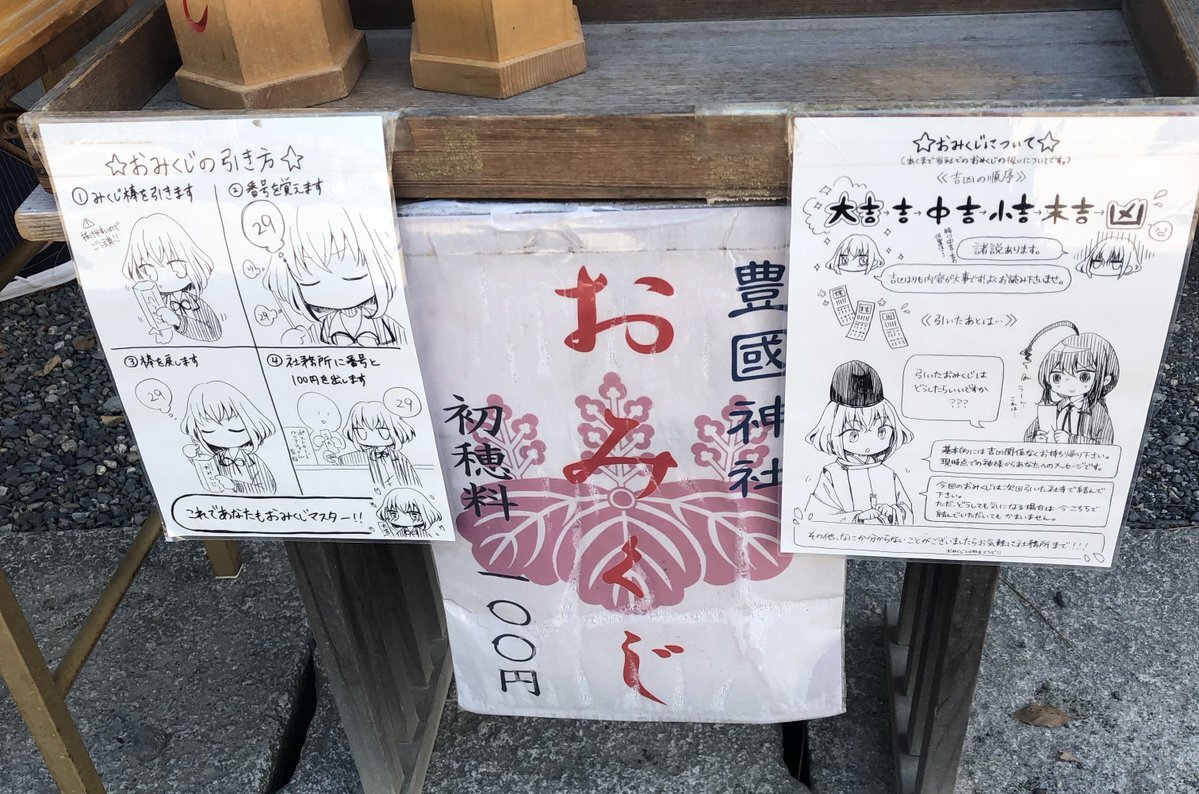 ☆おみくじの引き方☆
①みくじ棒を引きます
②番号を覚えます
29
29
③棒を戻します
29
④社務所に番号と
100円を出します
29
これであなたもおみくじマスター!!
豊國神社
おみくじ
初穂料 一〇〇円
☆おみくじについて☆
(あくまで当社でのおみくじの扱いについてです。)
《吉凶の順序》
大吉→吉→中吉→小吉→末吉→凶
諸説あります。
吉凶よりも内容が大事ですよ。よくお読み下さいませ。
《引いたあとは…》
引いたおみくじは
どうしたらいいですか
???
基本的には吉凶関係なくお持ち帰り下さい。
現時点での神様からあなたへのメッセージです。
今回のおみくじは次回引いた社寺で結んで
下さい。
ただ、どうしても気になる場合は今こちらで
結んでいただいてもかまいません。
その他、なにか分からないことがございましたらお気軽に社務所まで!!!